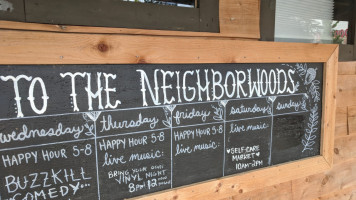 TO THE NEIGHBORWOODS
wednesday
HAPPY HOUR 5-8
BUZZKILL
COMEDY...
thursday
HAPPY HOUR 5-8
live music:
BRING YOUR OWN
VINYL NIGHT
friday
HAPPY HOUR 5-8
live music:
saturday
♥SELF-CARE
MARKET♥
10AM-2PM
sunday